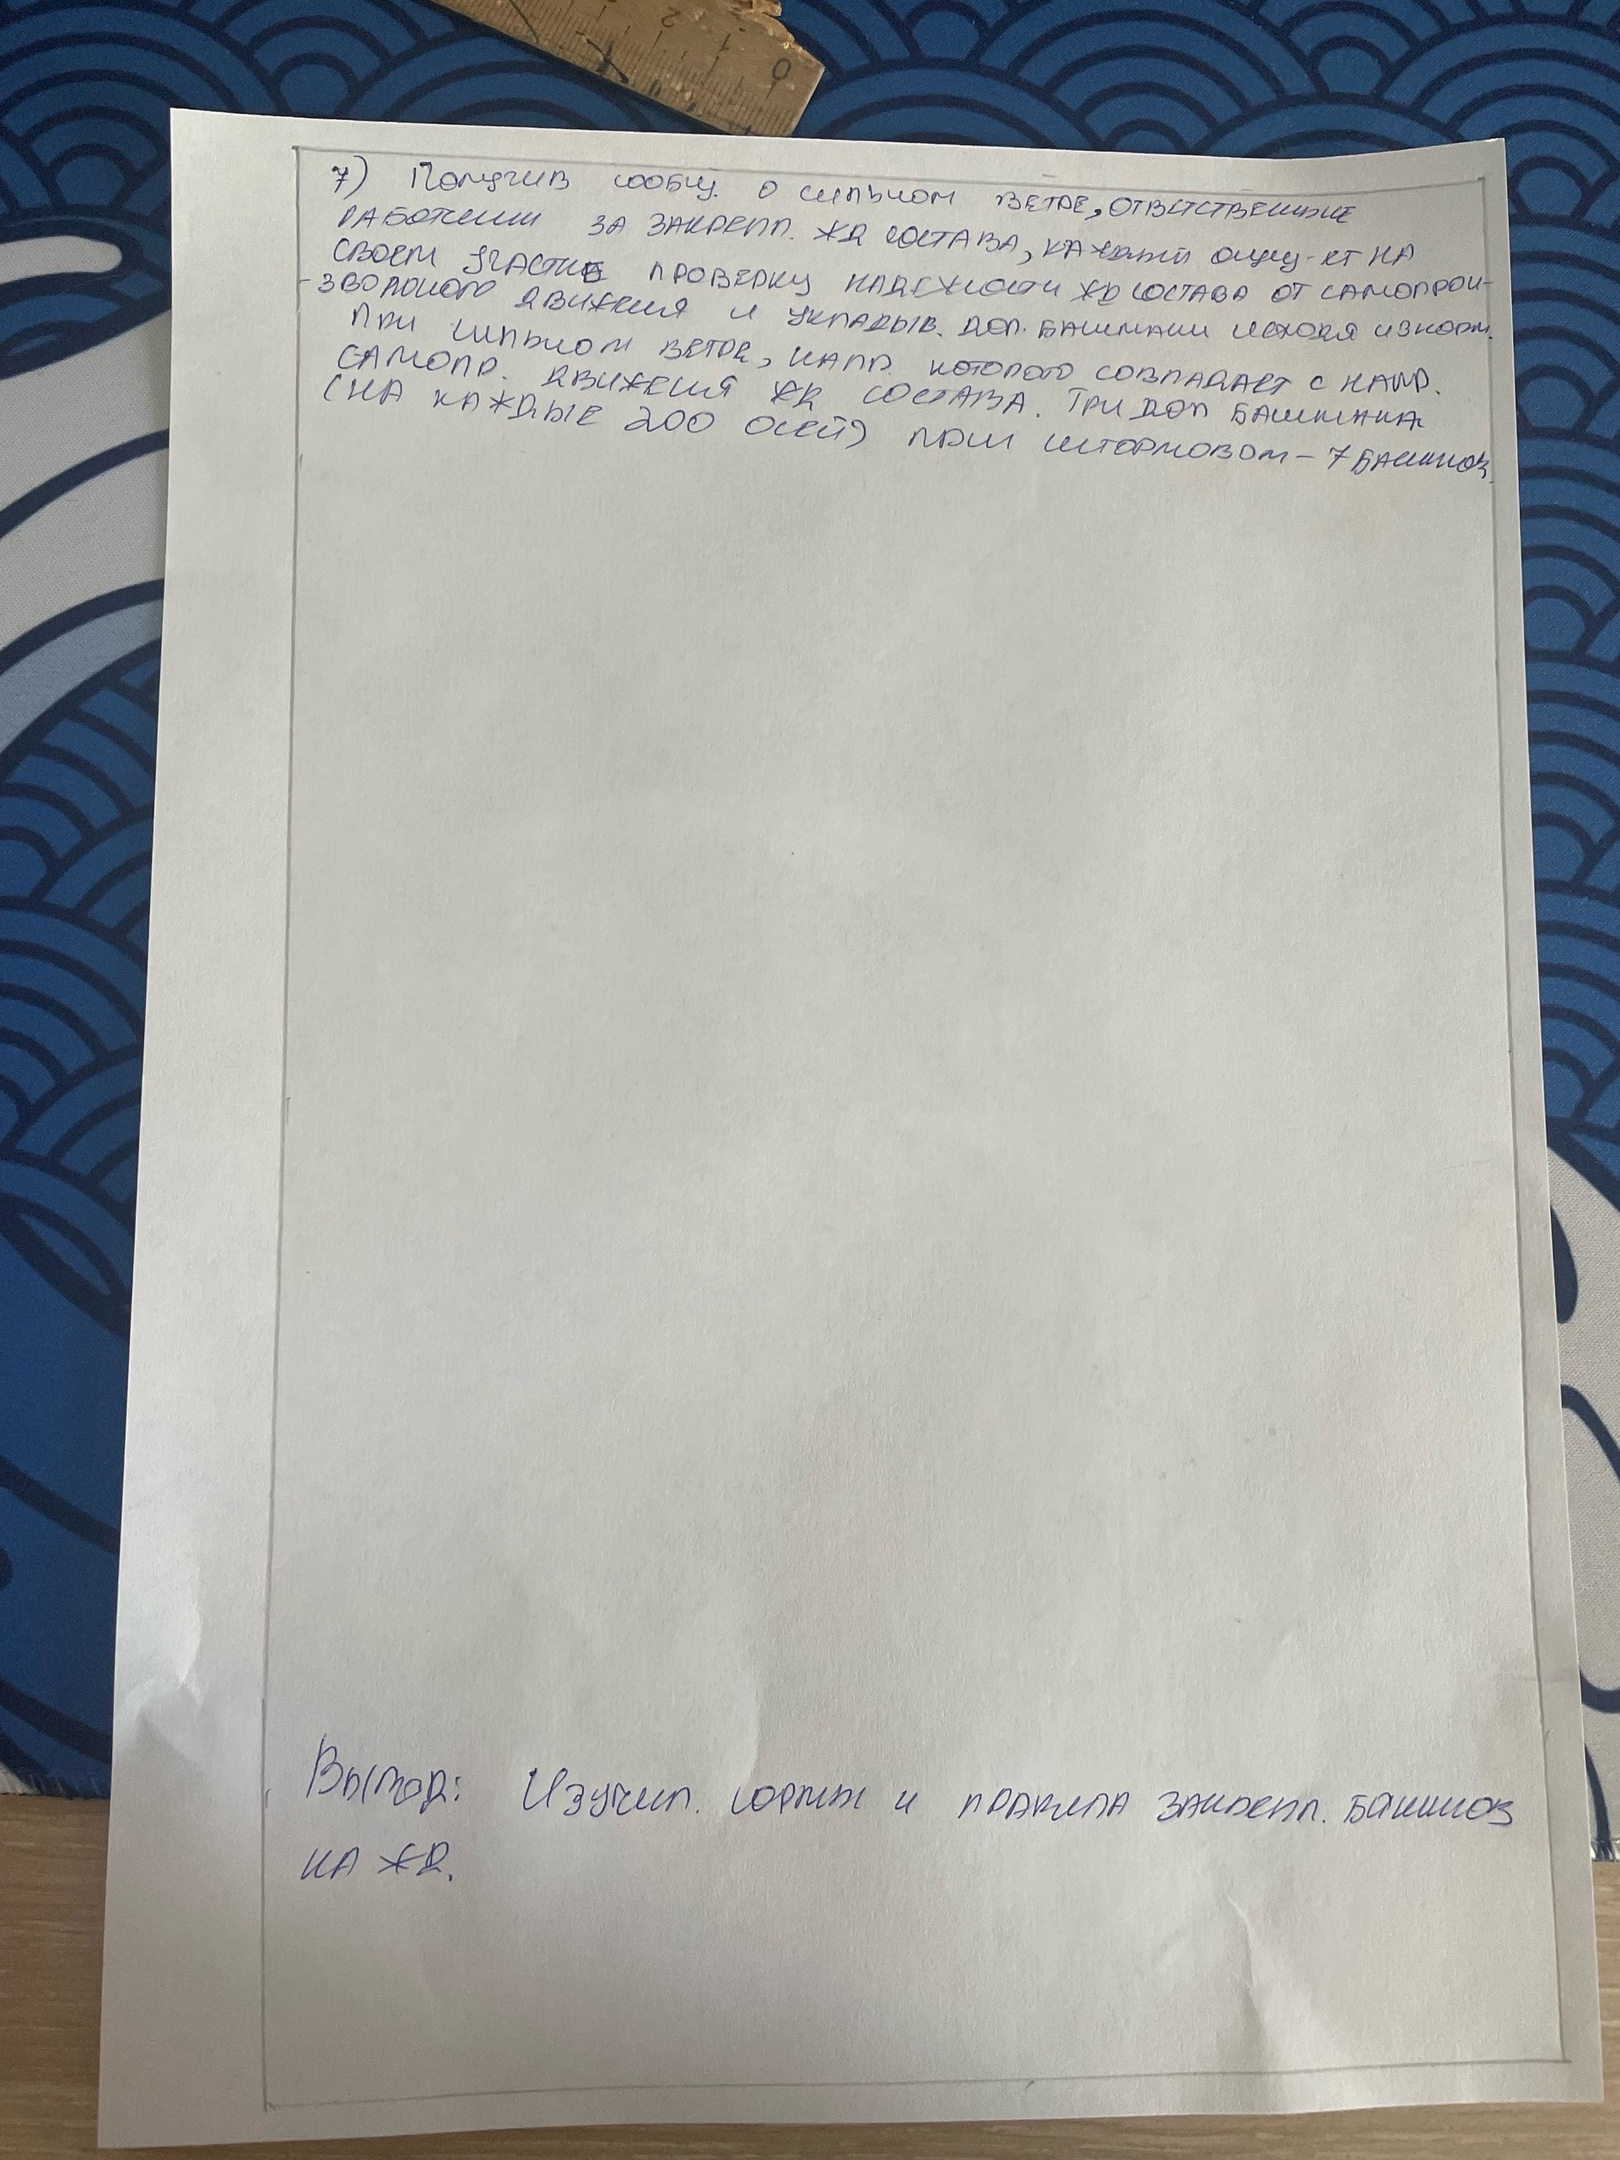 7) Получив сообщ. о сильном ветре, ответственные
работники за закрепл. жд состава, каждый осущ-ет на
своем участке проверку надежности жд состава от самопрои-
-звольного движения и укладыв. доп. башмаки исходя из норм.
При сильном ветре, напр. которого совпадает с напр.
самопр. движения жд состава. Три доп башмака
(на каждые 200 осей) при штормовом – 7 башмаков
Вывод: Изучил. нормы и правила закрепл. башмаков
на жд.
0 1 2